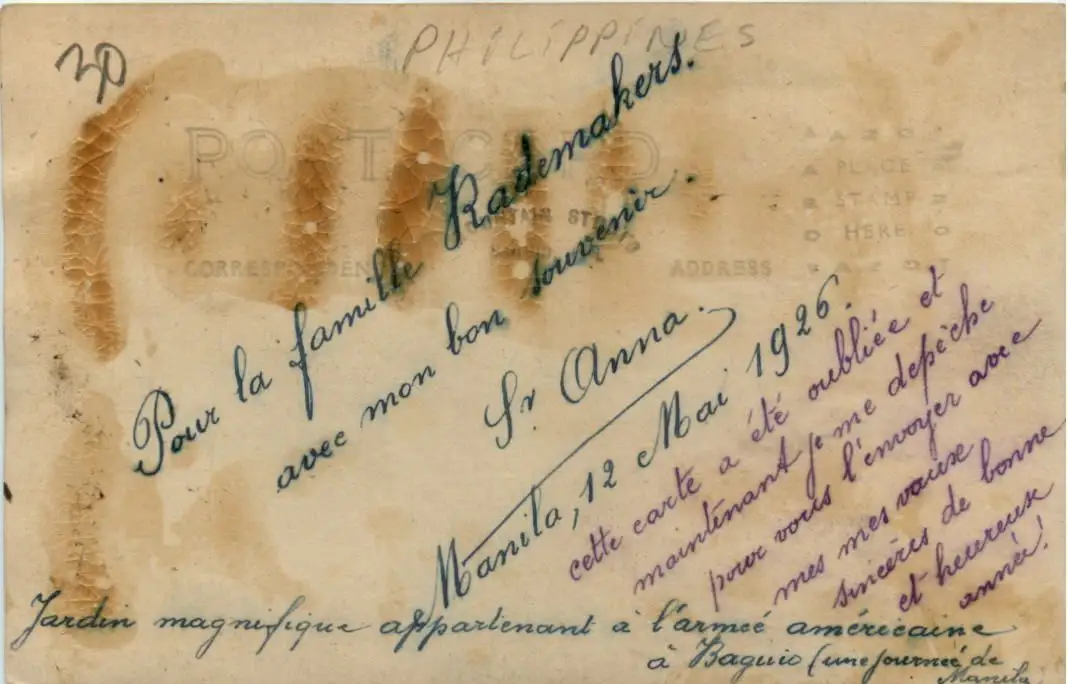 30
PHILIPPINES
POST CARD
AZO
PLACE
STAMP
HERE
CORRESPONDEN
ADDRESS
Pour la famille Rademakers.
avec mon bon souvenir.
Sr Anna.
Manila, 12 Mai 1926.
cette carte a été oubliée et
maintenant je me depêche
pour vous l'envoyer avec
mes mes vœux
sincères de bonne
et heureuse
année!
Jardin magnifique appartenant à l'armeé américaine
à Baguio (une journeé de
Manila